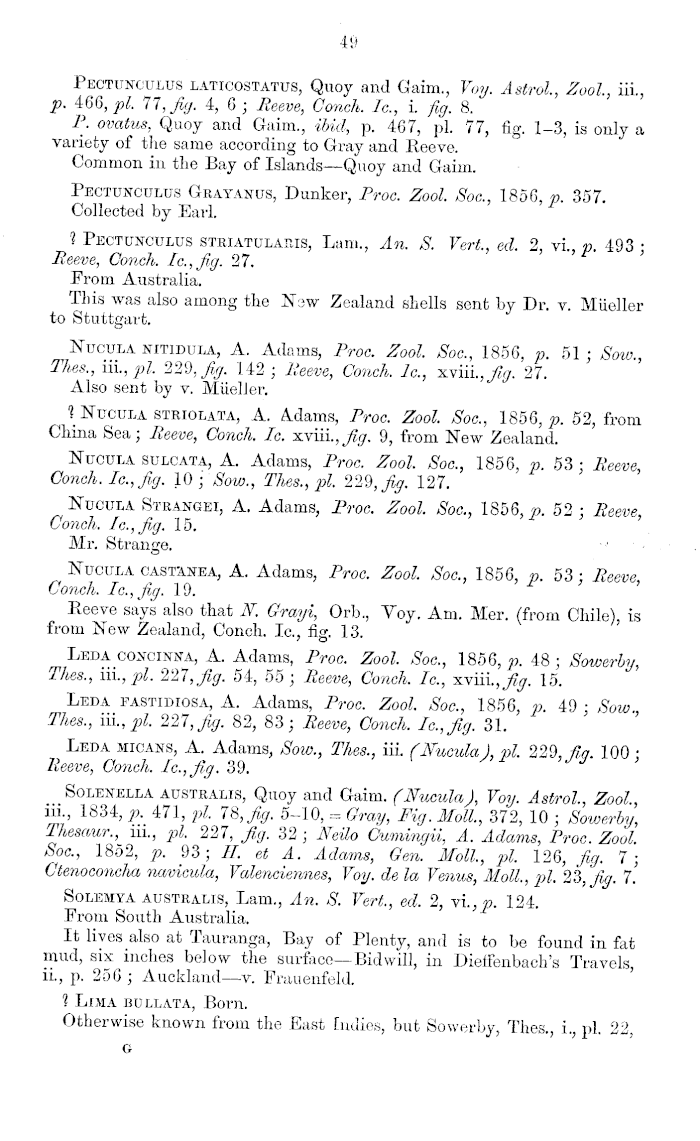 49
PECTUNCULUS LATICOSTATUS, Quoy and Gaim., Voy. Astrol., Zool., iii.,
p. 466, pl. 77, fig. 4, 6 ; Reeve, Conch. Ic., i. fig. 8.
P. ovatus, Quoy and Gaim., ibid, p. 467, pl. 77, fig. 1–3, is only a
variety of the same according to Gray and Reeve.
Common in the Bay of Islands—Quoy and Gaim.
PECTUNCULUS GRAYANUS, Dunker, Proc. Zool. Soc., 1856, p. 357.
Collected by Earl.
? PECTUNCULUS STRIATULARIS, Lam., An. S. Vert., ed. 2, vi., p. 493 ;
Reeve, Conch. Ic., fig. 27.
From Australia.
This was also among the New Zealand shells sent by Dr. v. Müeller
to Stuttgart.
NUCULA NITIDULA, A. Adams, Proc. Zool. Soc., 1856, p. 51 ; Sow.,
Thes., iii., pl. 229, fig. 142 ; Reeve, Conch. Ic., xviii., fig. 27.
Also sent by v. Müeller.
? NUCULA STRIOLATA, A. Adams, Proc. Zool. Soc., 1856, p. 52, from
China Sea ; Reeve, Conch. Ic. xviii., fig. 9, from New Zealand.
NUCULA SULCATA, A. Adams, Proc. Zool. Soc., 1856, p. 53 ; Reeve,
Conch. Ic., fig. 10 ; Sow., Thes., pl. 229, fig. 127.
NUCULA STRANGEI, A. Adams, Proc. Zool. Soc., 1856, p. 52 ; Reeve,
Conch. Ic., fig. 15.
Mr. Strange.
NUCULA CASTANEA, A. Adams, Proc. Zool. Soc., 1856, p. 53 ; Reeve,
Conch. Ic., fig. 19.
Reeve says also that N. Grayi, Orb., Voy. Am. Mer. (from Chile), is
from New Zealand, Conch. Ic., fig. 13.
LEDA CONCINNA, A. Adams, Proc. Zool. Soc., 1856, p. 48 ; Sowerby,
Thes., iii., pl. 227, fig. 54, 55 ; Reeve, Conch. Ic., xviii., fig. 15.
LEDA FASTIDIOSA, A. Adams, Proc. Zool. Soc., 1856, p. 49 ; Sow.,
Thes., iii., pl. 227, fig. 82, 83 ; Reeve, Conch. Ic., fig. 31.
LEDA MICANS, A. Adams, Sow., Thes., iii. (Nucula), pl. 229, fig. 100 ;
Reeve, Conch. Ic., fig. 39.
SOLENELLA AUSTRALIS, Quoy and Gaim. (Nucula), Voy. Astrol., Zool.,
iii., 1834, p. 471, pl. 78, fig. 5–10, = Gray, Fig. Moll., 372, 10 ; Sowerby,
Thesaur., iii., pl. 227, fig. 32 ; Neilo Cumingii, A. Adams, Proc. Zool.
Soc., 1852, p. 93 ; H. et A. Adams, Gen. Moll., pl. 126, fig. 7 ;
Ctenoconcha navicula, Valenciennes, Voy. de la Venus, Moll., pl. 23, fig. 7.
SOLEMYA AUSTRALIS, Lam., An. S. Vert., ed. 2, vi., p. 124.
From South Australia.
It lives also at Tauranga, Bay of Plenty, and is to be found in fat
mud, six inches below the surface—Bidwill, in Dieffenbach's Travels,
ii., p. 256 ; Auckland—v. Frauenfeld.
? LIMA BULLATA, Born.
Otherwise known from the East Indies, but Sowerby, Thes., i., pl. 22,
G